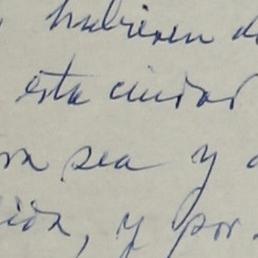 hubieren d
esta ciudad
ra sea y a
ción, y por